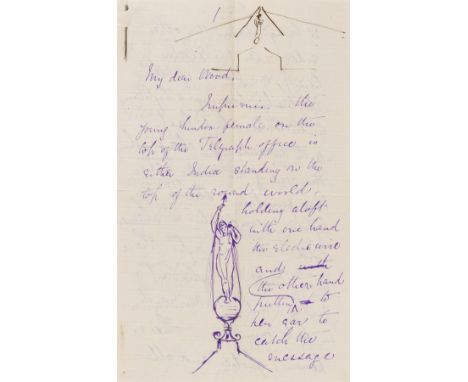 My dear Wood,
Imprimis. the
young Hindoo female on the
top of the Telegraph office is
either India standing on the
top of the round world
holding aloft
with one hand
the electric wire
and with
the other hand
putting to
her ear to
catch the
message